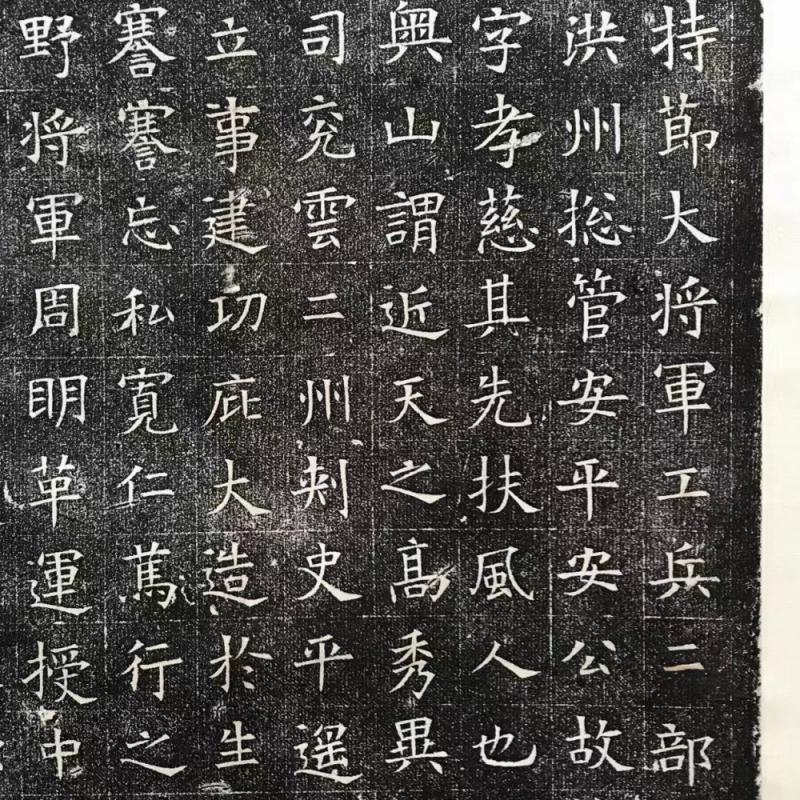 持節大将軍工兵二部
洪州捴管安平安公故
字孝慈其先扶風人也
奥山謂近天之髙秀異
司兖雲二州刾史平遥
立事建㓛庇大造於生
謇謇忘私寛仁篤行之
野将軍周明革運授中